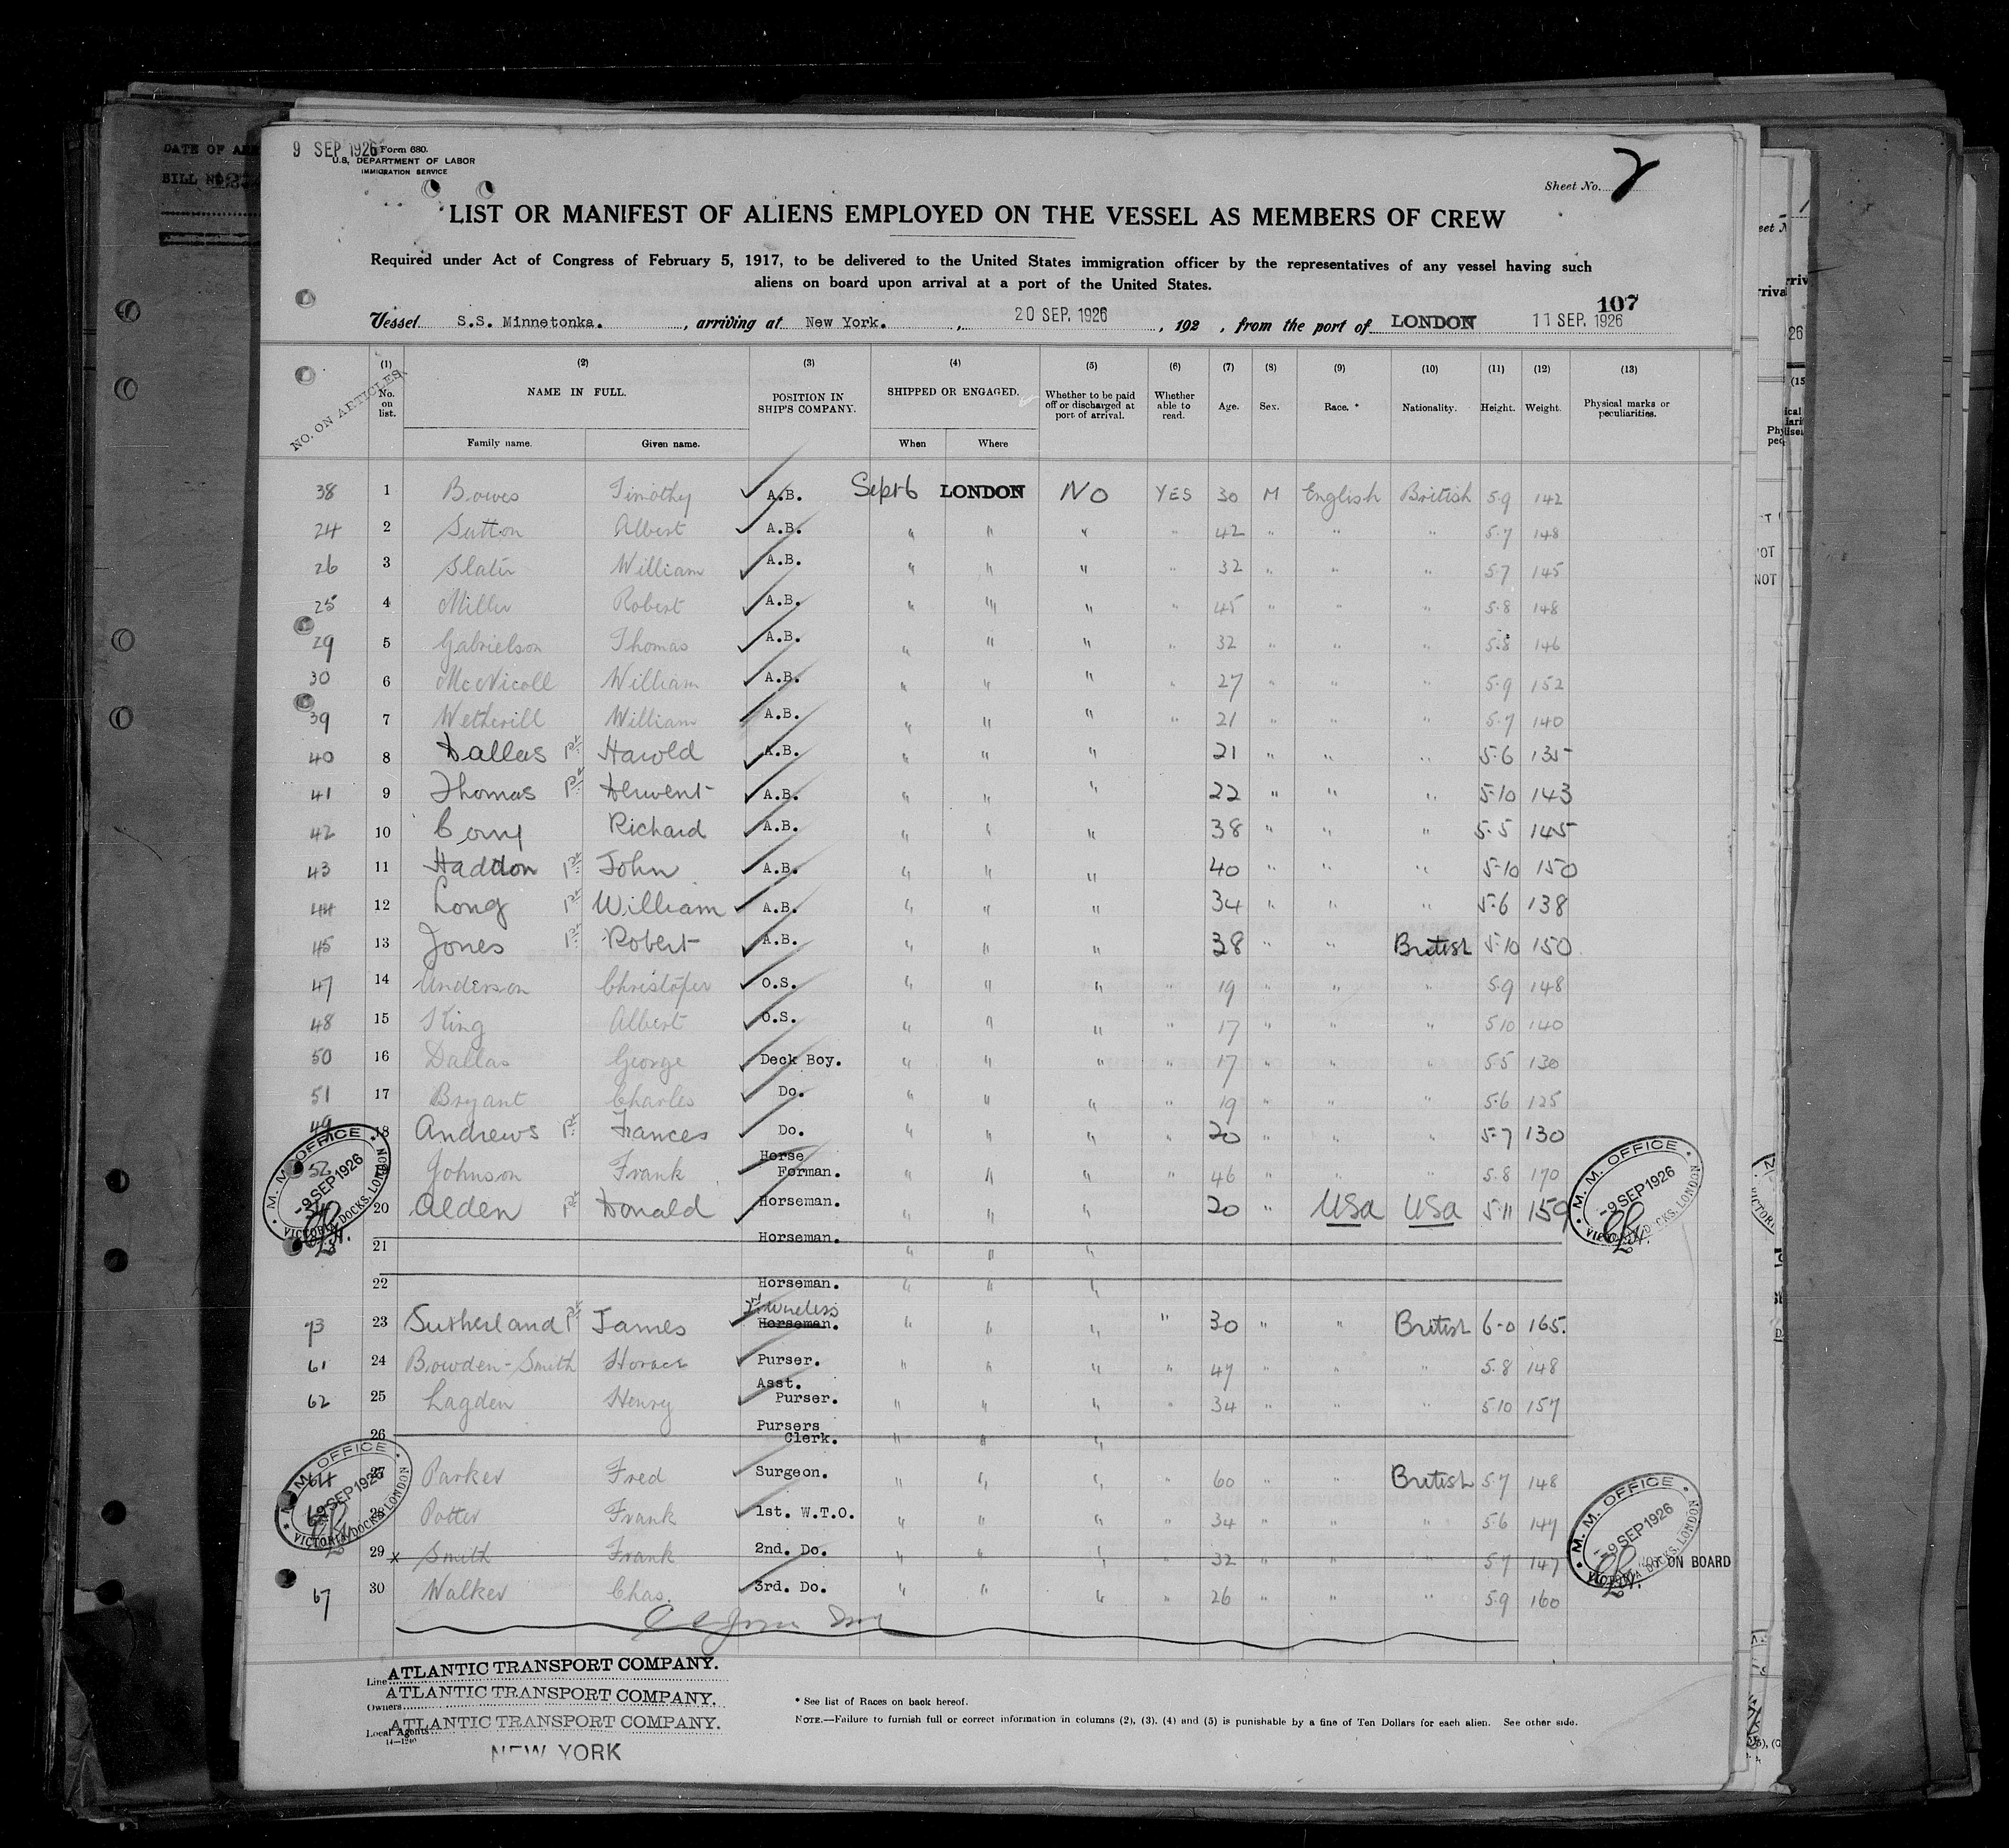 DATE OF
BILL NO
9 SEP 1926
Form 680.
U.S. DEPARTMENT OF LABOR
IMMIGRATION SERVICE
Sheet No. 2
LIST OR MANIFEST OF ALIENS EMPLOYED ON THE VESSEL AS MEMBERS OF CREW
Required under Act of Congress of February 5, 1917, to be delivered to the United States immigration officer by the representatives of any vessel having such
aliens on board upon arrival at a port of the United States.
107
Vessel S.S. Minnetonka. , arriving at New York. , 20 SEP. 1926 , 192 , from the port of LONDON 11 SEP. 1926
NO. ON ARTICLES.
(1) (2) (3) (4) (5) (6) (7) (8) (9) (10) (11) (12) (13)
No. on list. NAME IN FULL. POSITION IN SHIP'S COMPANY. SHIPPED OR ENGAGED. Whether to be paid off or discharged at port of arrival. Whether able to read. Age. Sex. Race. * Nationality. Height. Weight. Physical marks or peculiarities.
Family name. Given name. When Where
38 1 Bowes Timothy A.B. Sept 6 LONDON NO YES 30 M English British 5.9 142
24 2 Sutton Albert A.B. " " " " 42 " " " 5.7 148
26 3 Slater William A.B. " " " " 32 " " " 5.7 145
25 4 Miller Robert A.B. " " " " 45 " " " 5.8 148
29 5 Gabrielson Thomas A.B. " " " " 32 " " " 5.8 146
30 6 McNicoll William A.B. " " " " 27 " " " 5.9 152
39 7 Wetherill William A.B. " " " " 21 " " " 5.7 140
40 8 Dallas Pr Harold A.B. " " " 21 " " " 5.6 135
41 9 Thomas Pr Derwent A.B. " " " 22 " " " 5.10 143
42 10 Richard A.B. " " " 38 " " " 5.5 145
43 11 Haddon Pr John A.B. " " " 40 " " " 5.10 150
44 12 Long Pr William A.B. " " " 34 " " " 5.6 138
45 13 Jones Pr Robert A.B. " " " 38 " " British 5.10 150
47 14 Anderson Christoper O.S. " " " " 19 " " " 5.9 148
48 15 King Albert O.S. " " " " 17 " " " 5.10 140
50 16 Dallas George Deck Boy. " " " " 17 " " " 5.5 130
51 17 Bryant Charles Do. " " " " 19 " " " 5.6 125
49 18 Andrews Pr Frances Do. " " " " 20 " " " 5.7 130
52 Johnson Frank Horse Forman. " " " " 46 " " " 5.8 170
20 Alden Pr Donald Horseman. " " " 20 " USA USA 5.11 159
21 Horseman. " " "
22 Horseman. " " "
73 23 Sutherland Pr James 2nd Wireless Horseman. " " " " 30 " " British 6-0 165.
61 24 Bowden-Smith Horace Purser. " " " " 47 " " " 5.8 148
62 25 Lagden Henry Asst. Purser. " " " " 34 " " " 5.10 157
26 Pursers Clerk. " " "
64 27 Parker Fred Surgeon. " " " " 60 " " British 5.7 148
28 Potter Frank 1st. W.T.O. " " " " 34 " " " 5.6 147
29 x Smith Frank 2nd. Do. " " " " 32 " " " 5.7 147 NOT ON BOARD
67 30 Walker Chas. 3rd. Do. " " " " 26 " " " 5.9 160
M. M. OFFICE
-9 SEP 1926
VICTORIA DOCKS, LONDON
M. M. OFFICE
-9 SEP 1926
VICTORIA DOCKS, LONDON
M. M. OFFICE
-9 SEP 1926
VICTORIA DOCKS, LONDON
M. M. OFFICE
-9 SEP 1926
VICTORIA DOCKS, LONDON
Line ATLANTIC TRANSPORT COMPANY.
Owners ATLANTIC TRANSPORT COMPANY.
Local Agents ATLANTIC TRANSPORT COMPANY.
14-1240
NEW YORK
* See list of Races on back hereof.
NOTE.—Failure to furnish full or correct information in columns (2), (3), (4) and (5) is punishable by a fine of Ten Dollars for each alien. See other side.